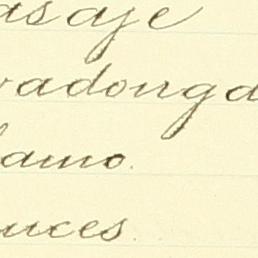 asaje
vadonga
lamo.
uces.